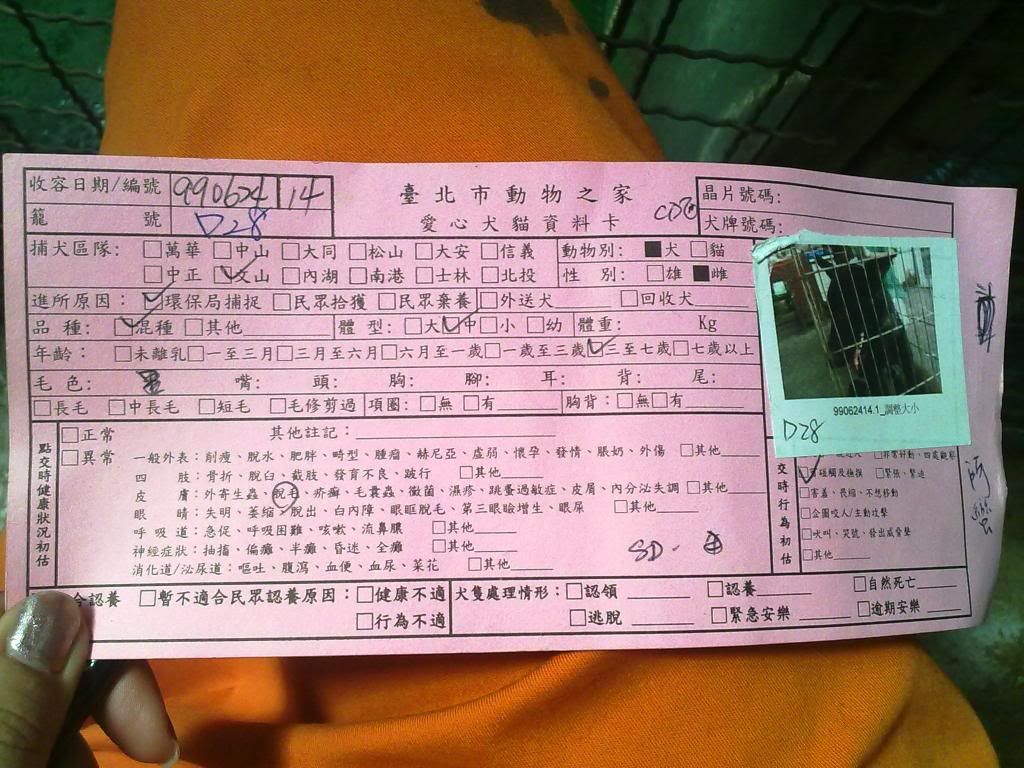 收容日期/編號 990624 14
籠 號 D28
臺北市動物之家
愛心犬貓資料卡
晶片號碼:
犬牌號碼:
捕犬區隊: □萬華 □中山 □大同 □松山 □大安 □信義 動物別: ■犬 □貓
□中正 ☑文山 □內湖 □南港 □士林 □北投 性 別: □雄 ■雌
進所原因: ☑環保局捕捉 □民眾拾獲 □民眾棄養 □外送犬 □回收犬
品 種: ☑混種 □其他 體 型: □大 ☑中 □小 □幼 體重: Kg
年齡: □未離乳 □一至三月 □三月至六月 □六月至一歲 □一歲至三歲 ☑三至七歲 □七歲以上
毛 色: 黑 嘴: 頭: 胸: 腳: 耳: 背: 尾:
□長毛 □中長毛 □短毛 □毛修剪過 項圈: □無 □有 胸背: □無 □有
99062414.1_調整大小
D28
點交時健康狀況初估
□正常 其他註記:
□異常 一般外表: 削瘦、脫水、肥胖、畸型、腫瘤、赫尼亞、虛弱、懷孕、發情、脹奶、外傷 □其他
四 肢: 骨折、脫臼、截肢、發育不良、跛行 □其他
皮 膚: 外寄生蟲、脫毛、疥癬、毛囊蟲、黴菌、濕疹、跳蚤過敏症、皮屑、內分泌失調 □其他
眼 睛: 失明、萎縮、脫出、白內障、眼眶脫毛、第三眼瞼增生、眼屎 □其他
呼吸道: 急促、呼吸困難、咳嗽、流鼻膿 □其他
神經症狀: 抽搐、偏癱、半癱、昏迷、全癱 □其他
消化道/泌尿道: 嘔吐、腹瀉、血便、血尿、菜花 □其他
SD
交時行為初估
□非常好動、四處觀察
碰觸及檢撫 □緊張、緊迫
□害羞、畏縮、不想移動
□企圖咬人/主動攻擊
□吠叫、哭號、發出威脅聲
□其他
合認養 □暫不適合民眾認養原因: □健康不適
□行為不適
犬隻處理情形: □認領 □認養 □自然死亡
□逃脫 □緊急安樂 □逾期安樂